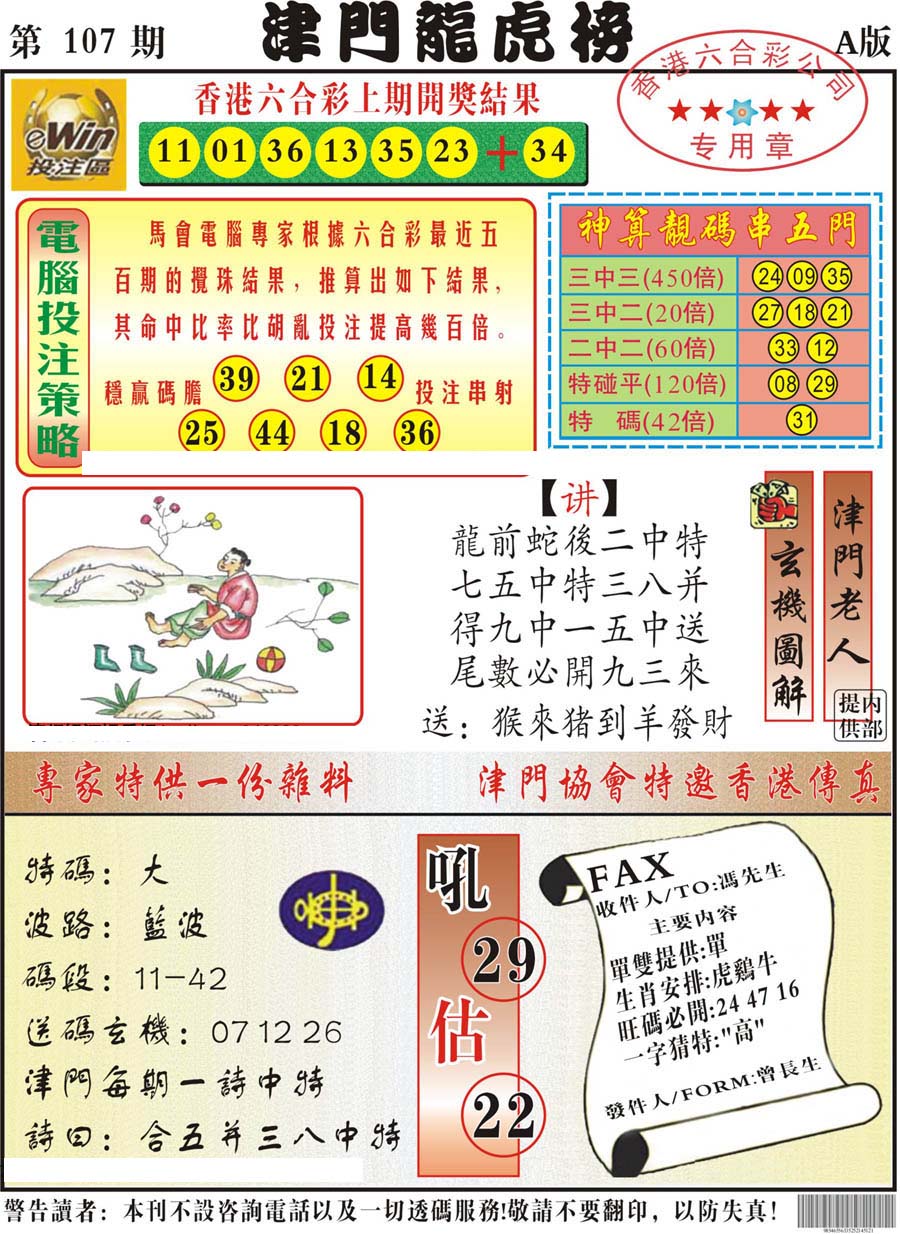 第 107 期
津門龍虎榜
A版
eWin
投注區
香港六合彩上期開獎結果
11 01 36 13 35 23 + 34
香港六合彩公司
专用章
電腦投注策略
馬會電腦專家根據六合彩最近五
百期的攪珠結果，推算出如下結果，
其命中比率比胡亂投注提高幾百倍。
穩贏碼膽 39 21 14 投注串射
25 44 18 36
神算靚碼串五門
三中三(450倍) 24 09 35
三中二(20倍) 27 18 21
二中二(60倍) 33 12
特碰平(120倍) 08 29
特 碼(42倍) 31
【讲】
龍前蛇後二中特
七五中特三八并
得九中一五中送
尾數必開九三來
送：猴來猪到羊發財
玄機圖解
津門老人
内部提供
專家特供一份雜料
津門協會特邀香港傳真
特碼：大
波路：藍波
碼段：11-42
送碼玄機：07 12 26
津門每期一詩中特
詩曰：合五并三八中特
吼
29
估
22
FAX
收件人/TO:馮先生
主要内容
單雙提供:單
生肖安排:虎鷄牛
旺碼必開:24 47 16
一字猜特:"高"
發件人/FORM:曾長生
警告讀者：本刊不設咨詢電話以及一切透碼服務!敬請不要翻印，以防失真!